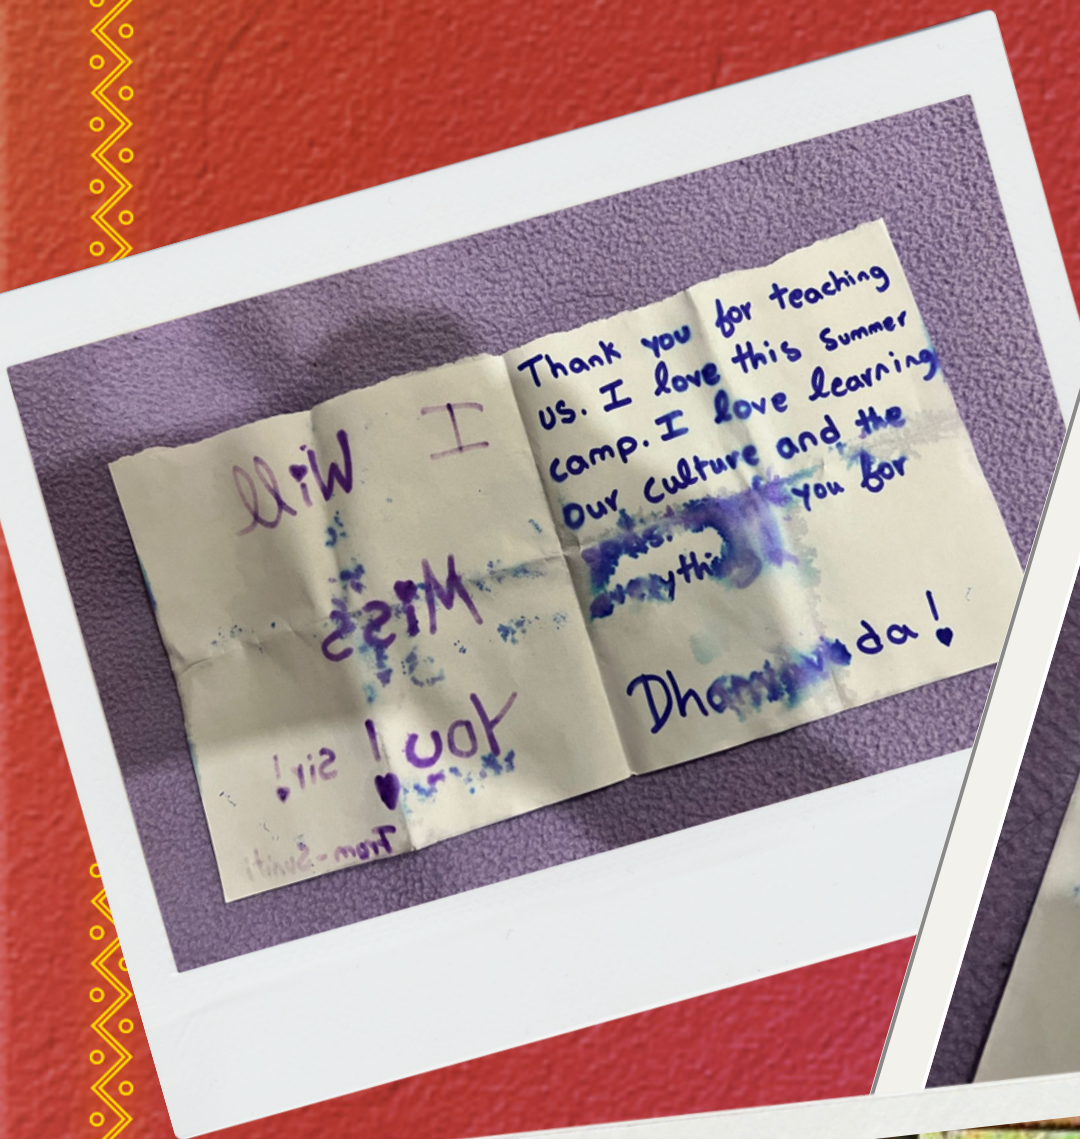 I Will
Miss
You! Sir!
From-Suniti
Thank you for teaching
us. I love this summer
camp. I love learning
our culture and the
you for
everything
Dhanyavada!